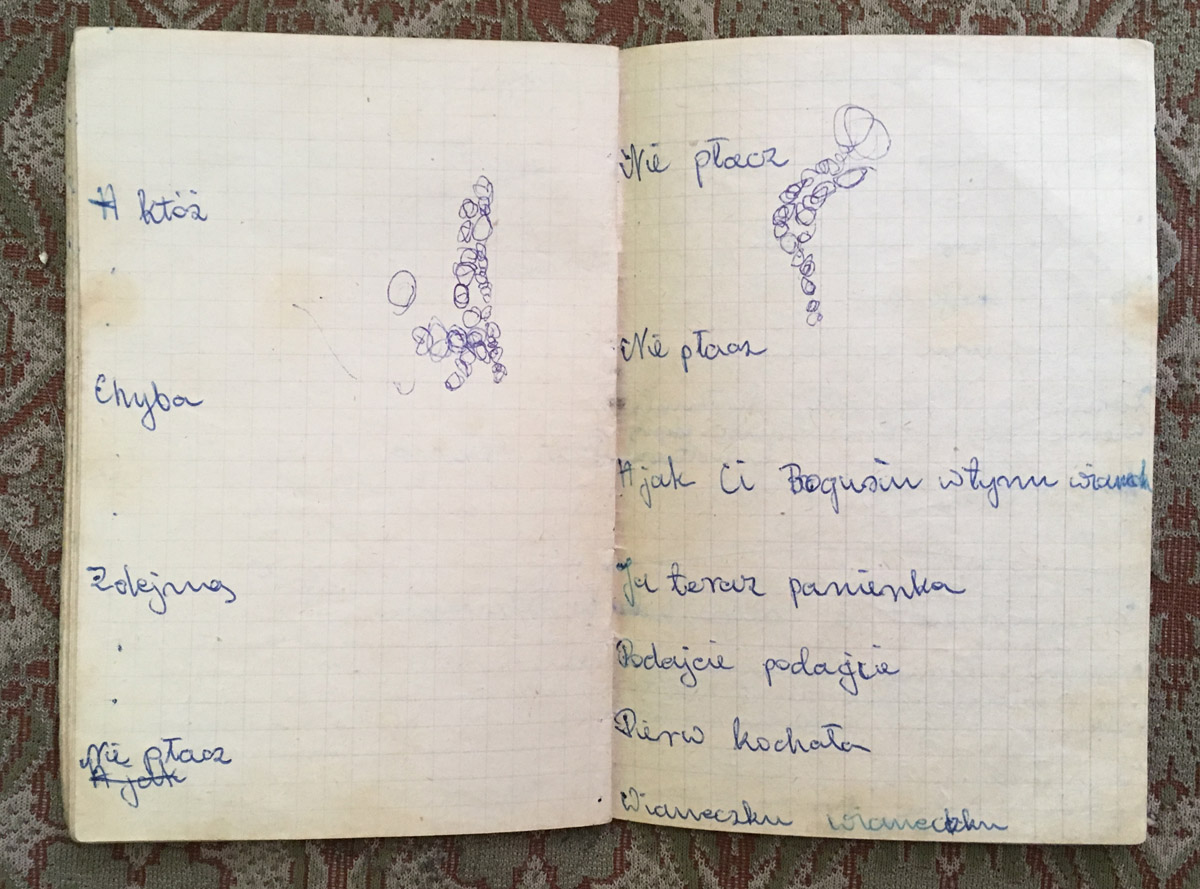 A któż
Chyba
Zdejmą
Nie płacz
A jak
Nie płacz
Nie płacz
A jak Ci Bogusiu w tym
Ja teraz panienka
Podajcie podajcie
Pierw kochała
Wianeczku wianeczku